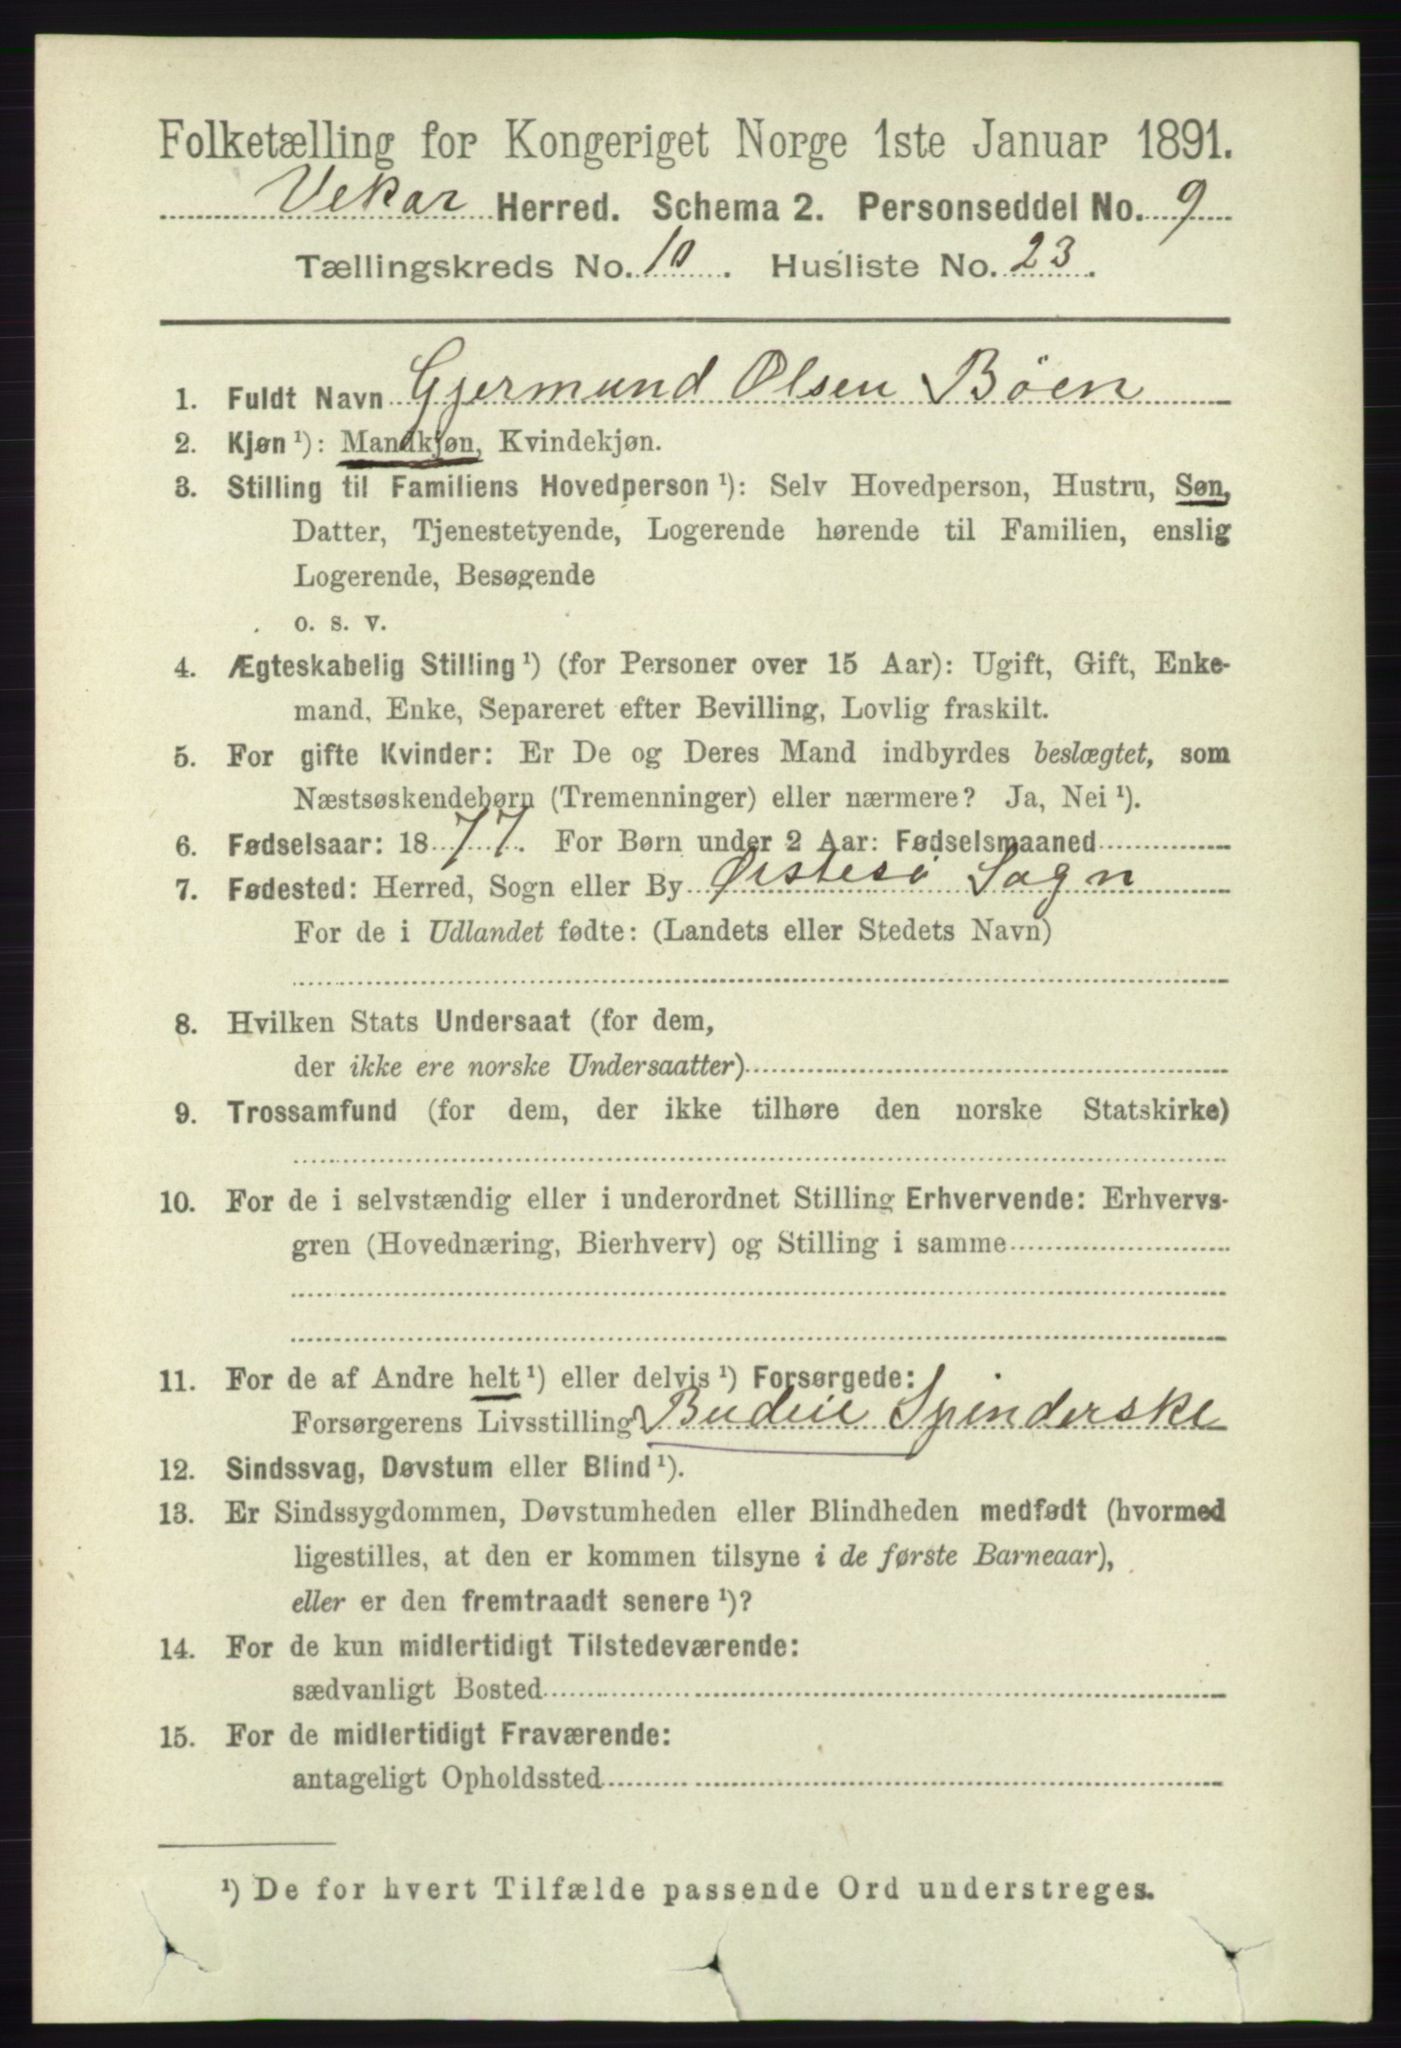 Folketælling for Kongeriget Norge 1ste Januar 1891.
Vekør Herred. Schema 2. Personseddel No. 9
Tællingskreds No. 10. Husliste No. 23.
1. Fuldt Navn Gjermund Olsen Bøen
2. Kjøn ¹): Mandkjøn, Kvindekjøn.
3. Stilling til Familiens Hovedperson ¹): Selv Hovedperson, Hustru, Søn,
Datter, Tjenestetyende, Logerende hørende til Familien, enslig
Logerende, Besøgende
o. s. v.
4. Ægteskabelig Stilling ¹) (for Personer over 15 Aar): Ugift, Gift, Enke-
mand, Enke, Separeret efter Bevilling, Lovlig fraskilt.
5. For gifte Kvinder: Er De og Deres Mand indbyrdes beslægtet, som
Næstsøskendebørn (Tremenninger) eller nærmere? Ja, Nei ¹).
6. Fødselsaar: 1877. For Børn under 2 Aar: Fødselsmaaned
7. Fødested: Herred, Sogn eller By Østesø Sogn
For de i Udlandet fødte: (Landets eller Stedets Navn)
8. Hvilken Stats Undersaat (for dem,
der ikke ere norske Undersaatter)
9. Trossamfund (for dem, der ikke tilhøre den norske Statskirke)
10. For de i selvstændig eller i underordnet Stilling Erhvervende: Erhvervs-
gren (Hovednæring, Bierhverv) og Stilling i samme
11. For de af Andre helt ¹) eller delvis ¹) Forsørgede:
Forsørgerens Livsstilling Budeie Spinderske
12. Sindssvag, Døvstum eller Blind ¹).
13. Er Sindssygdommen, Døvstumheden eller Blindheden medfødt (hvormed
ligestilles, at den er kommen tilsyne i de første Barneaar),
eller er den fremtraadt senere ¹)?
14. For de kun midlertidigt Tilstedeværende:
sædvanligt Bosted
15. For de midlertidigt Fraværende:
antageligt Opholdssted
¹) De for hvert Tilfælde passende Ord understreges.